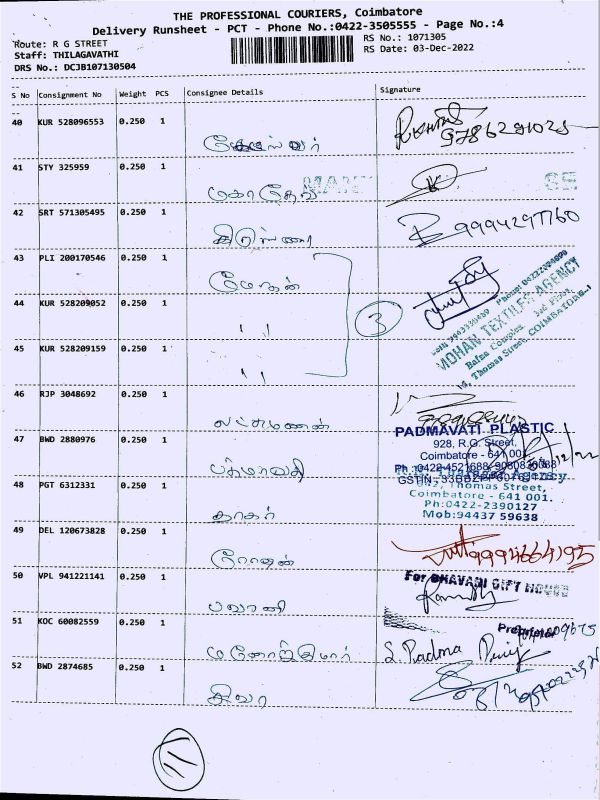 THE PROFESSIONAL COURIERS, Coimbatore
Delivery Runsheet - PCT - Phone No.:0422-3505555 - Page No.:4
Route: R G STREET
RS No.: 1071305
Staff: THILAGAVATHI
RS Date: 03-Dec-2022
DRS No.: DCJB107130504
S No Consignment No Weight PCS Consignee Details Signature
40 KUR 528096553 0.250 1
9786291025
41 STY 325959 0.250 1
மகாதேவ
42 SRT 571305495 0.250 1
9994297760
43 PLI 200170546 0.250 1
மோகன்
44 KUR 528209052 0.250 1
" 3
45 KUR 528209159 0.250 1
"
MOHAN TEXTILES AGENCY
Bafna Complex, 3rd Floor,
14, Thomas Street, COIMBATORE-1
46 RJP 3048692 0.250 1
லட்சுமணன்
47 BWD 2880976 0.250 1
பத்மாவதி
PADMAVATI PLASTIC
928, R.G. Street,
Coimbatore - 641 001.
48 PGT 6312331 0.250 1
தாகர்
Thomas Street,
Coimbatore - 641 001.
Ph:0422-2390127
Mob:94437 59638
49 DEL 120673828 0.250 1
ரோஷன்
9994664195
50 VPL 941221141 0.250 1
பவானி
For BHAVANI GIFT HOUSE
51 KOC 60082559 0.250 1
மனோஜ்குமார்
Proprietor
S. Padma
52 BWD 2874685 0.250 1
சிவா
11